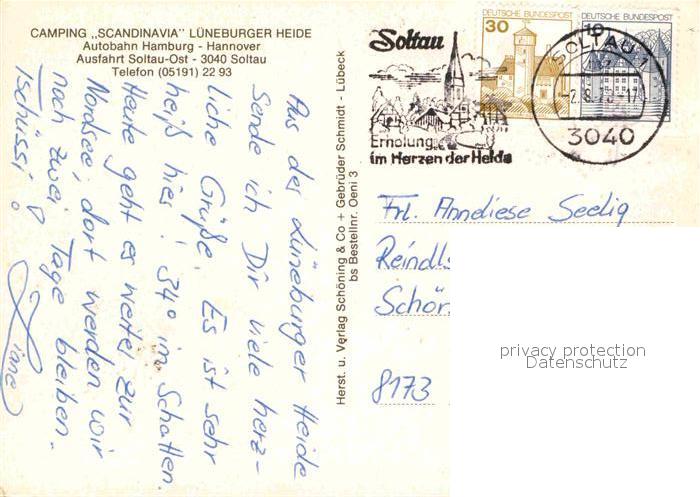 CAMPING „SCANDINAVIA” LÜNEBURGER HEIDE
Autobahn Hamburg - Hannover
Ausfahrt Soltau-Ost - 3040 Soltau
Telefon (05191) 22 93
Aus der Lüneburger Heide
sende ich Dir viele herz-
liche Grüße. Es ist sehr
heiß hier! 34° im Schatten.
Heute geht es weiter zur
Nordsee, dort werden wir
noch zwei Tage bleiben.
Tschüssi!
Herst. u. Verlag Schöning & Co + Gebrüder Schmidt - Lübeck
bs Bestellnr. Oeni 3
Soltau
Erholung
im Herzen der Heide
30
DEUTSCHE BUNDESPOST
10
DEUTSCHE BUNDESPOST
SOLTAU 1
3040
Frl. Anneliese Seelig
Reindls
Schön
8173
privacy protection
Datenschutz